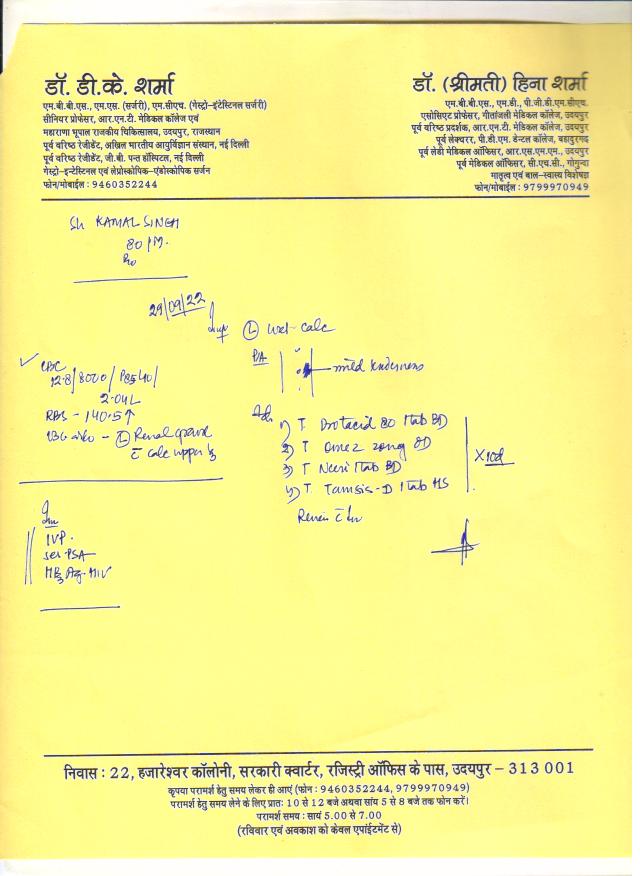 डॉ. डी.के. शर्मा
एम.बी.बी.एस., एम.एस. (सर्जरी), एम.सीएच. (गेस्ट्रो-इंटेस्टिनल सर्जरी)
सीनियर प्रोफेसर, आर.एन.टी. मेडिकल कॉलेज एवं
महाराणा भूपाल राजकीय चिकित्सालय, उदयपुर, राजस्थान
पूर्व वरिष्ठ रेजीडेंट, अखिल भारतीय आयुर्विज्ञान संस्थान, नई दिल्ली
पूर्व वरिष्ठ रेजीडेंट, जी.बी. पन्त हॉस्पिटल, नई दिल्ली
गेस्ट्रो-इन्टेस्टिनल एवं लेप्रोस्कोपिक-एंडोस्कोपिक सर्जन
फोन/मोबाईल : 9460352244
डॉ. (श्रीमती) हिना शर्मा
एम.बी.बी.एस., एम.डी., पी.जी.डी.एम.सीएच.
एसोसिएट प्रोफेसर, गीतांजली मेडिकल कॉलेज, उदयपुर
पूर्व वरिष्ठ प्रदर्शक, आर.एन.टी. मेडिकल कॉलेज, उदयपुर
पूर्व लेक्चरर, पी.डी.एम. डेन्टल कॉलेज, बहादुरगढ़
पूर्व लेडी मेडिकल ऑफिसर, आर.एस.एम.एम., उदयपुर
पूर्व मेडिकल ऑफिसर, सी.एच.सी., गोगुन्दा
मातृत्व एवं बाल-स्वास्थ्य विशेषज्ञ
फोन/मोबाईल : 9799970949
Sh KAMAL SINGH
80/M.
29/09/22
(L) calc
P/A
mild tenderness
CBC
12.8/8000/P85
2.04L
RBS - 140.5↑
(L) Renal
calc upper ⅓
Adv
1) T 1 tab BD
2) T Omez 20mg OD
3) T Neeri 1 tab BD
4) T. Tamsis-D 1 tab HS
X10d
IVP.
ser. PSA
HIV
निवास : 22, हजारेश्वर कॉलोनी, सरकारी क्वार्टर, रजिस्ट्री ऑफिस के पास, उदयपुर – 313 001
कृपया परामर्श हेतु समय लेकर ही आएं (फोन : 9460352244, 9799970949)
परामर्श हेतु समय लेने के लिए प्रातः 10 से 12 बजे अथवा सांय 5 से 8 बजे तक फोन करें।
परामर्श समय : सायं 5.00 से 7.00
(रविवार एवं अवकाश को केवल एपांईटमेंट से)